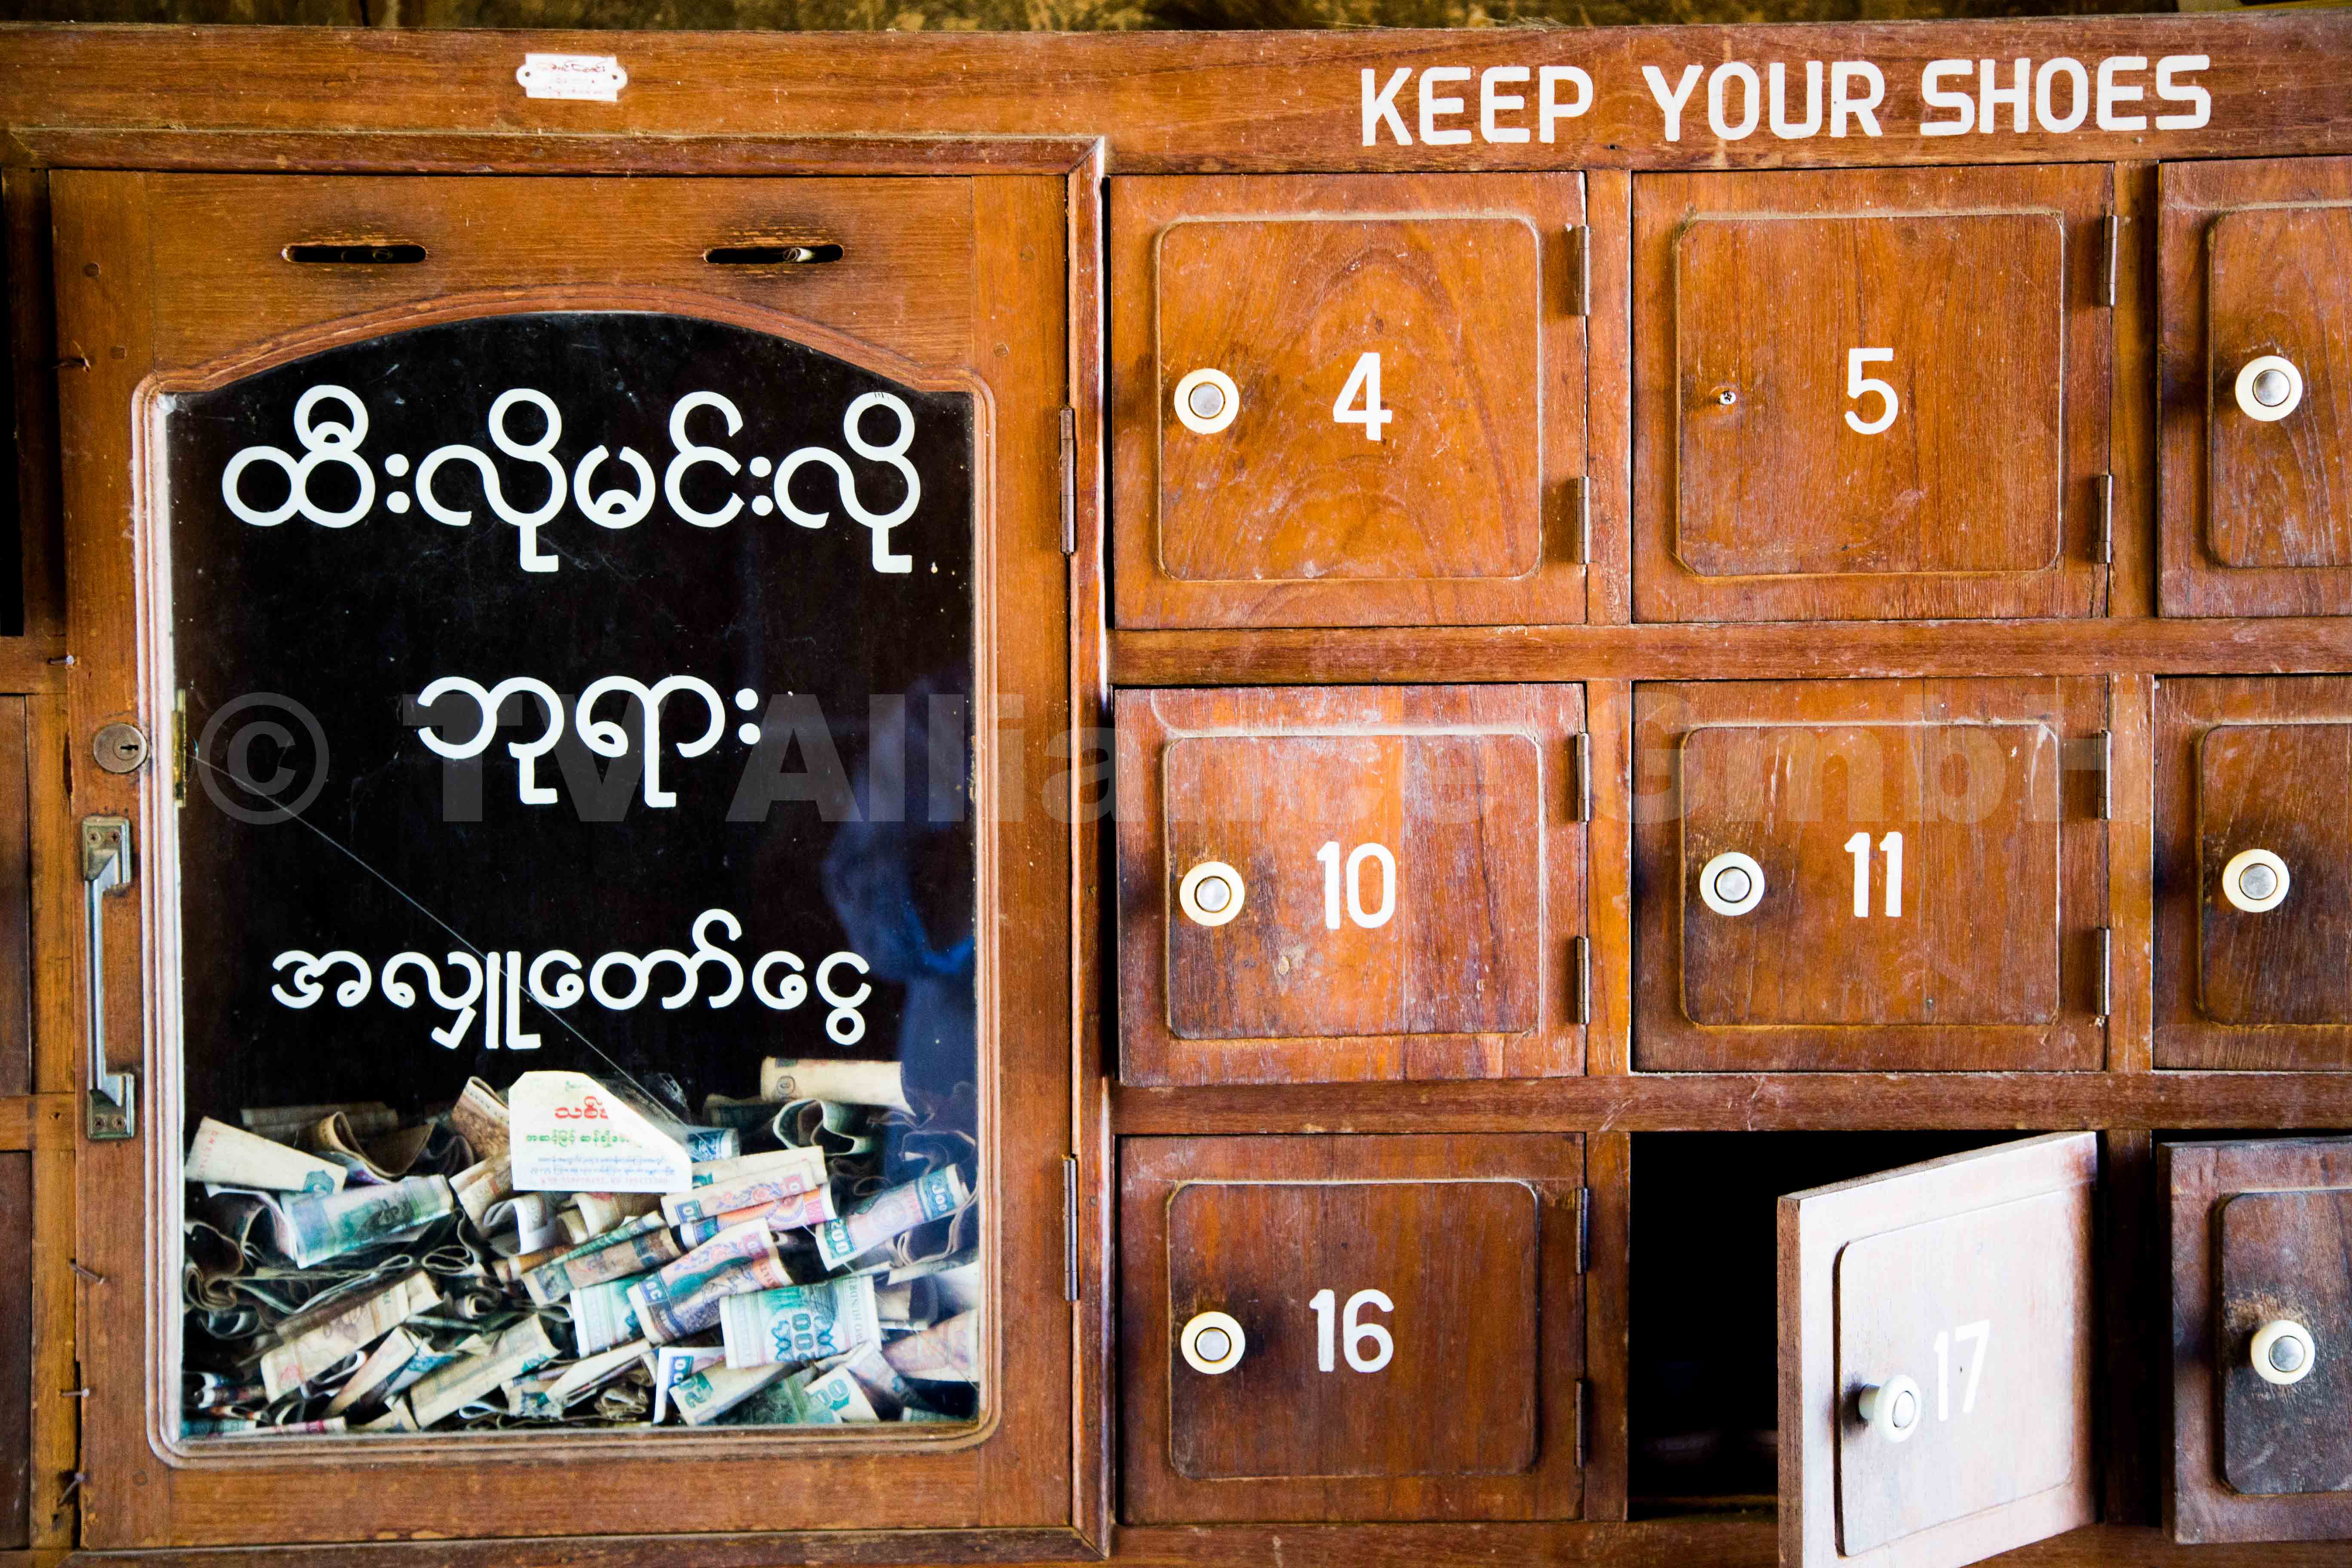 KEEP YOUR SHOES
ထီးလိုမင်းလို
ဘုရား
အလှူတော်ငွေ
4
5
10
11
16
17
© TV Alliance GmbH